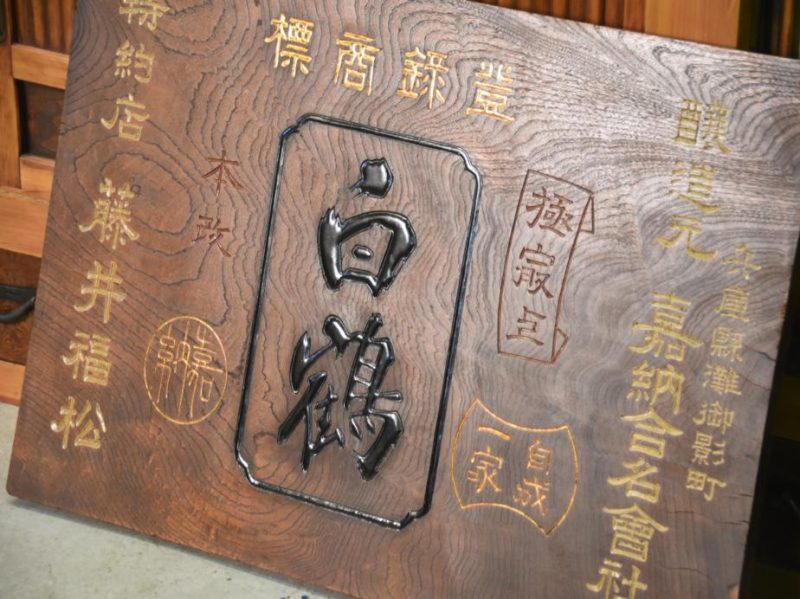 登錄商標
兵庫縣灘御影町
釀造元 嘉納合名會社
極㝡上
自成
一家
白鶴
本改
嘉納
特約店 藤井福松